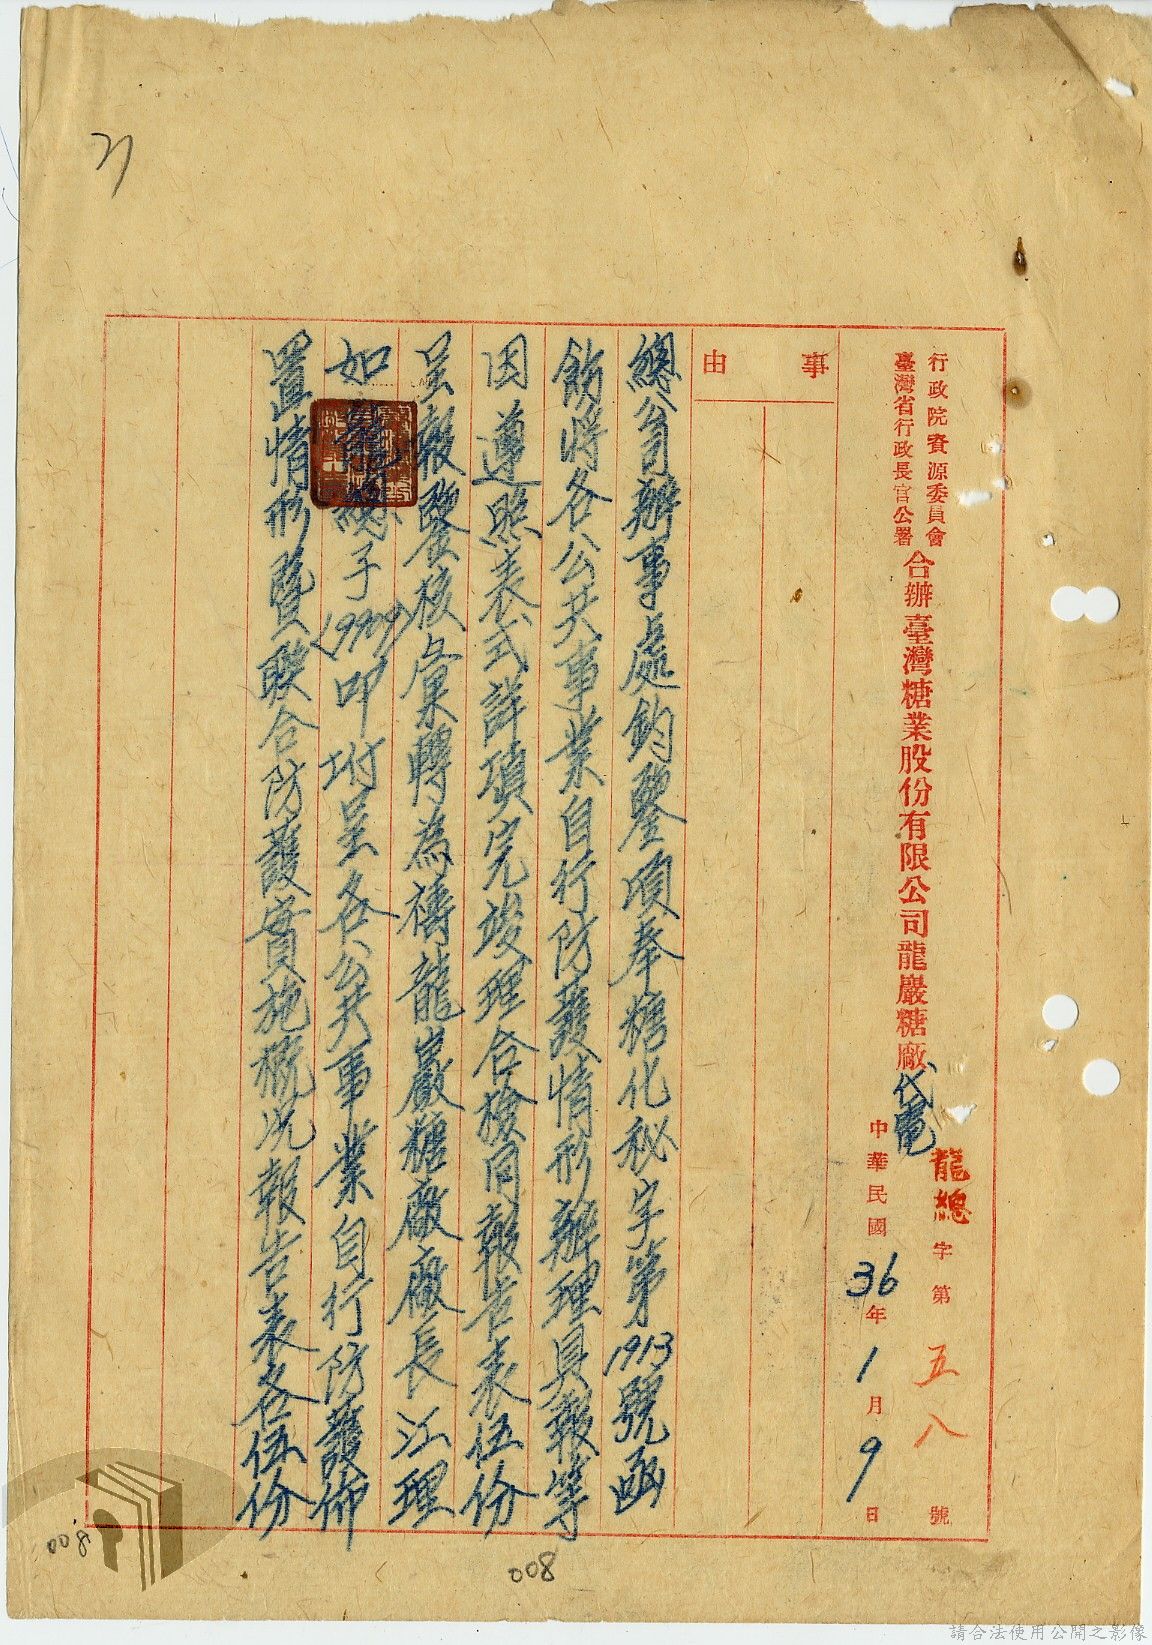 行政院資源委員會
臺灣省行政長官公署
合辦臺灣糖業股份有限公司龍巖糖廠代電
龍總字第五八號
中華民國36年1月9日
事由
總公司辦事處鈞鑒項奉糖化秘字第1913號函
飭將各公共事業自行防護情形辦理具報等
因遵照表式詳項完竣理合檢同報告表伍份
呈報鑒核彙轉為禱龍巖糖廠廠長江理
如龍總子(9909)叩坿呈各公共事業自行防護佈
置情形暨聯合防護實施概況報告表各伍份
21
008
008
請合法使用公開之影像